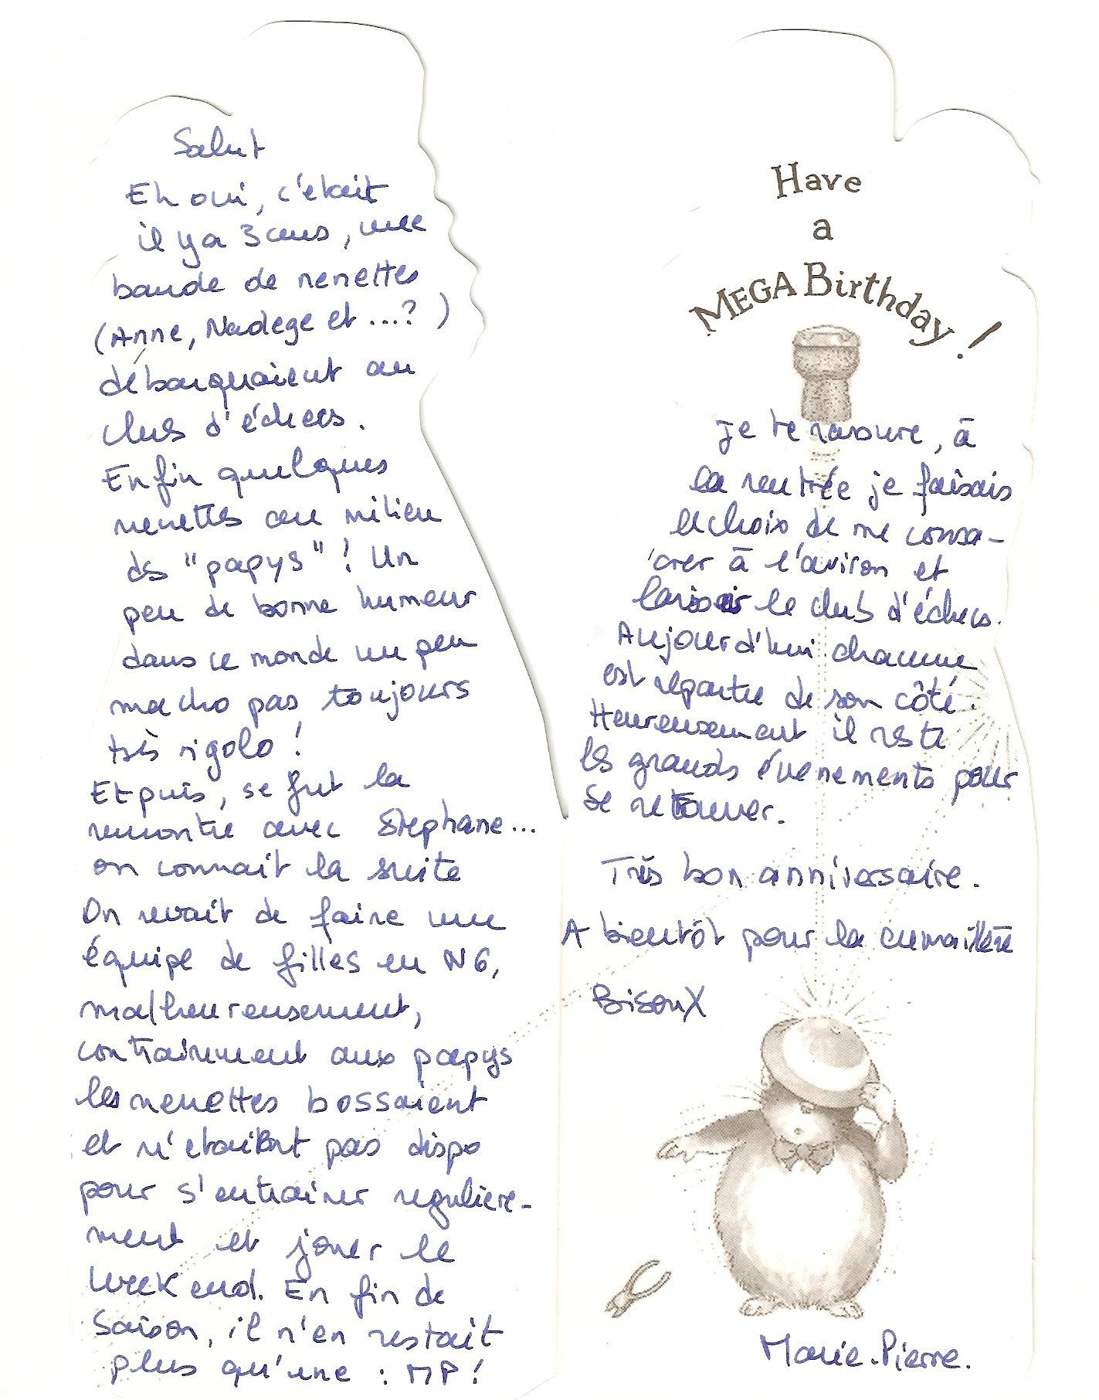 Salut
Eh oui, c'était
il y a 3 ans, une
bande de nenettes
(Anne, Nadege et ...? )
débarquaient au
club d'échecs.
Enfin quelques
nenettes au milieu
des "papys" ! Un
peu de bonne humeur
dans ce monde un peu
macho pas toujours
très rigolo !
Et puis, se fut la
rencontre avec Stephane...
on connait la suite
On revait de faire une
équipe de filles en N6,
malheureusement,
contrairement aux papys
les nenettes bossaient
et n'etaient pas dispo
pour s'entrainer reguliere-
ment et jouer le
week end. En fin de
saison, il n'en restait
plus qu'une : MP !
Have
a
MEGA Birthday!
Je te rassure, à
la rentrée je faisais
le choix de me consa-
crer à l'aviron et
laisser le club d'échecs.
Aujourd'hui chacune
est repartie de son côté.
Heureusement il reste
les grands évenements pour
se retrouver.
Très bon anniversaire.
A bientôt pour la cremaillère
BisouX
Marie-Pierre.